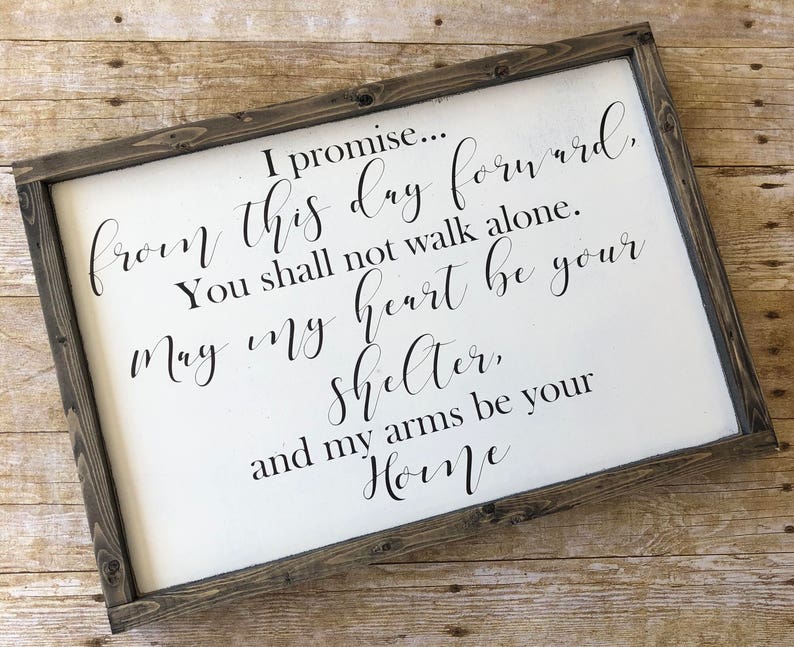 I promise...
from this day forward,
You shall not walk alone.
May my heart be your
shelter,
and my arms be your
Home